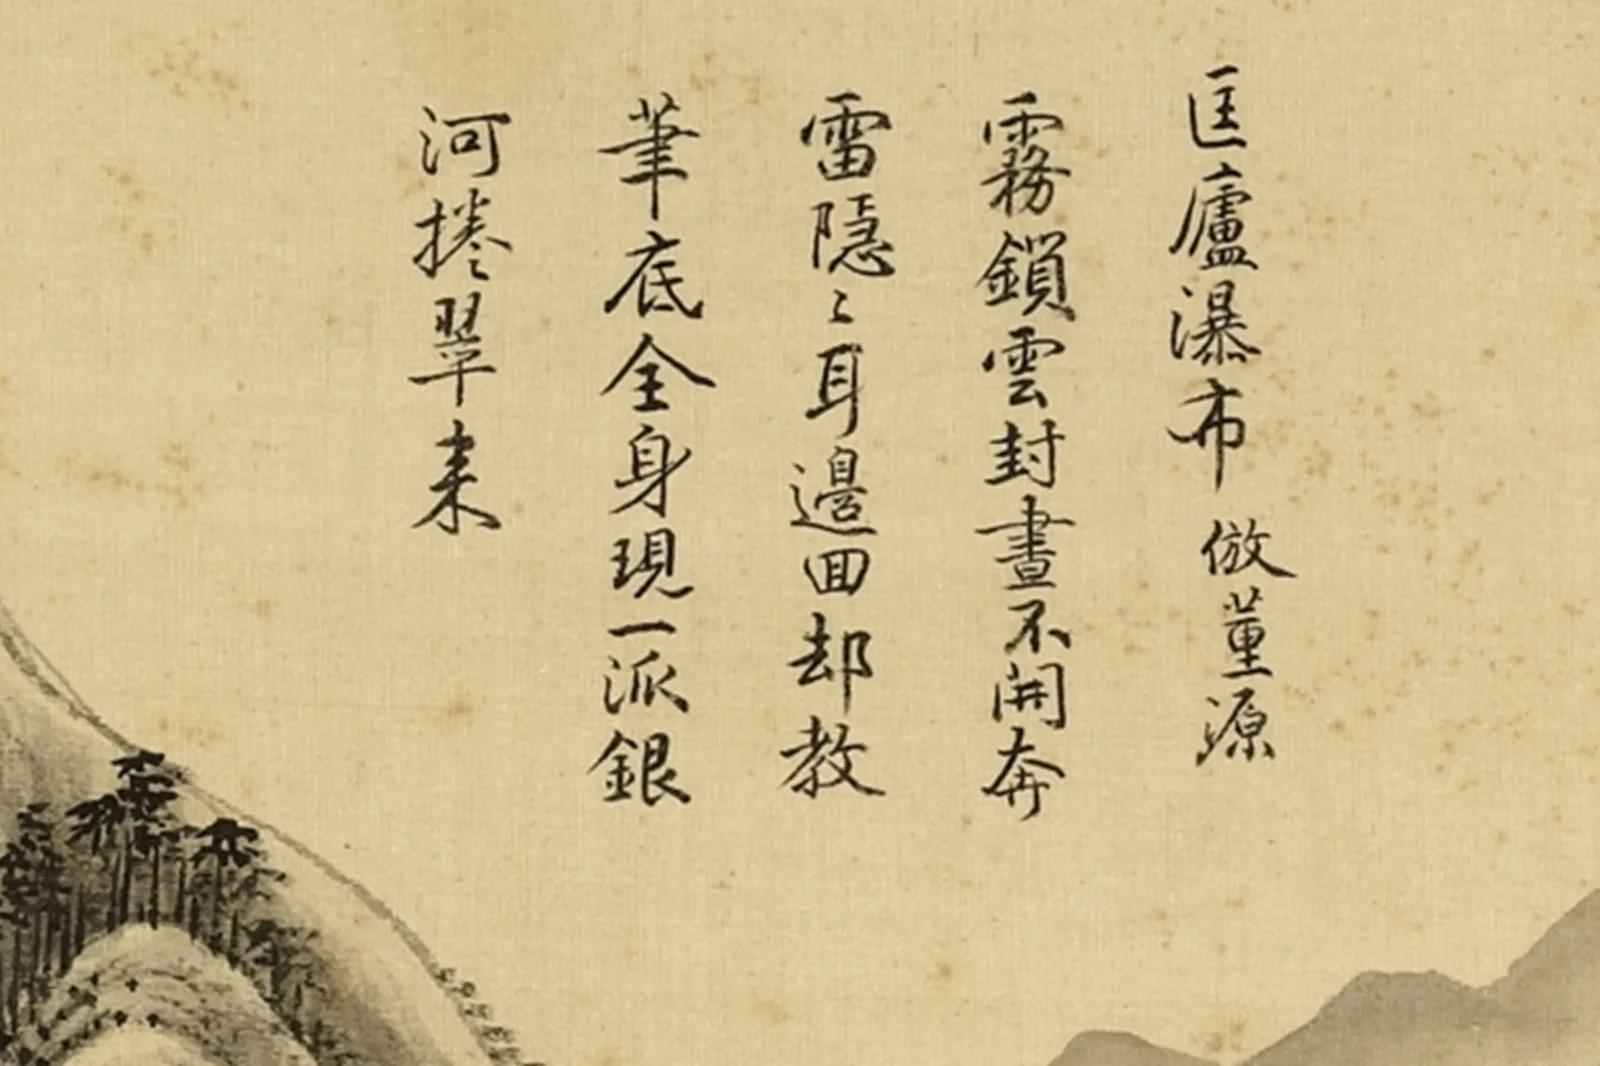 匡廬瀑布 倣董源
霧鎖雲封晝不開奔
雷隱〻耳邊回却教
筆底全身現一派銀
河捲翠來